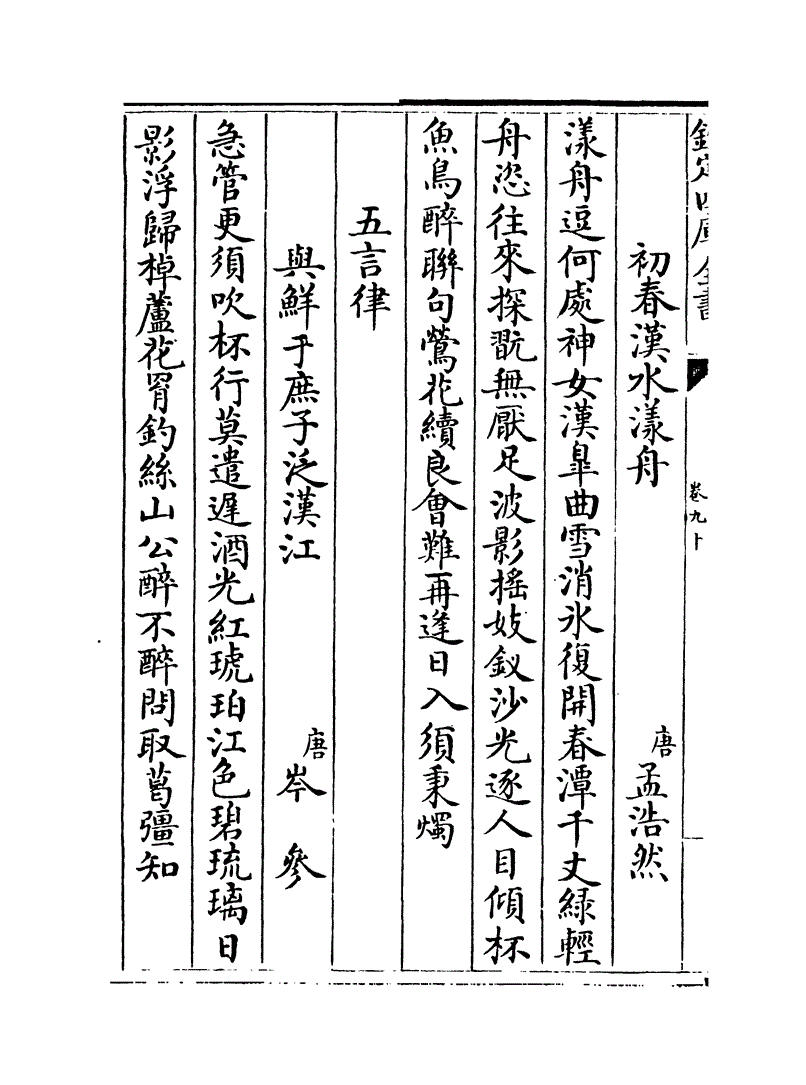 欽定四庫全書
卷九十
初春漢水漾舟 唐 孟浩然
漾舟逗何處神女漢皐曲雪消氷復開春潭千丈緑輕
舟恣往來探翫無厭足波影揺妓釵沙光逐人目傾杯
魚鳥醉聯句鶯花續良會難再逢日入須秉燭
五言律
與鮮于庶子泛漢江 唐 岑參
急管更須吹杯行莫遣遲酒光紅琥珀江色碧琉璃日
影浮歸棹蘆花罥釣絲山公醉不醉問取葛彊知